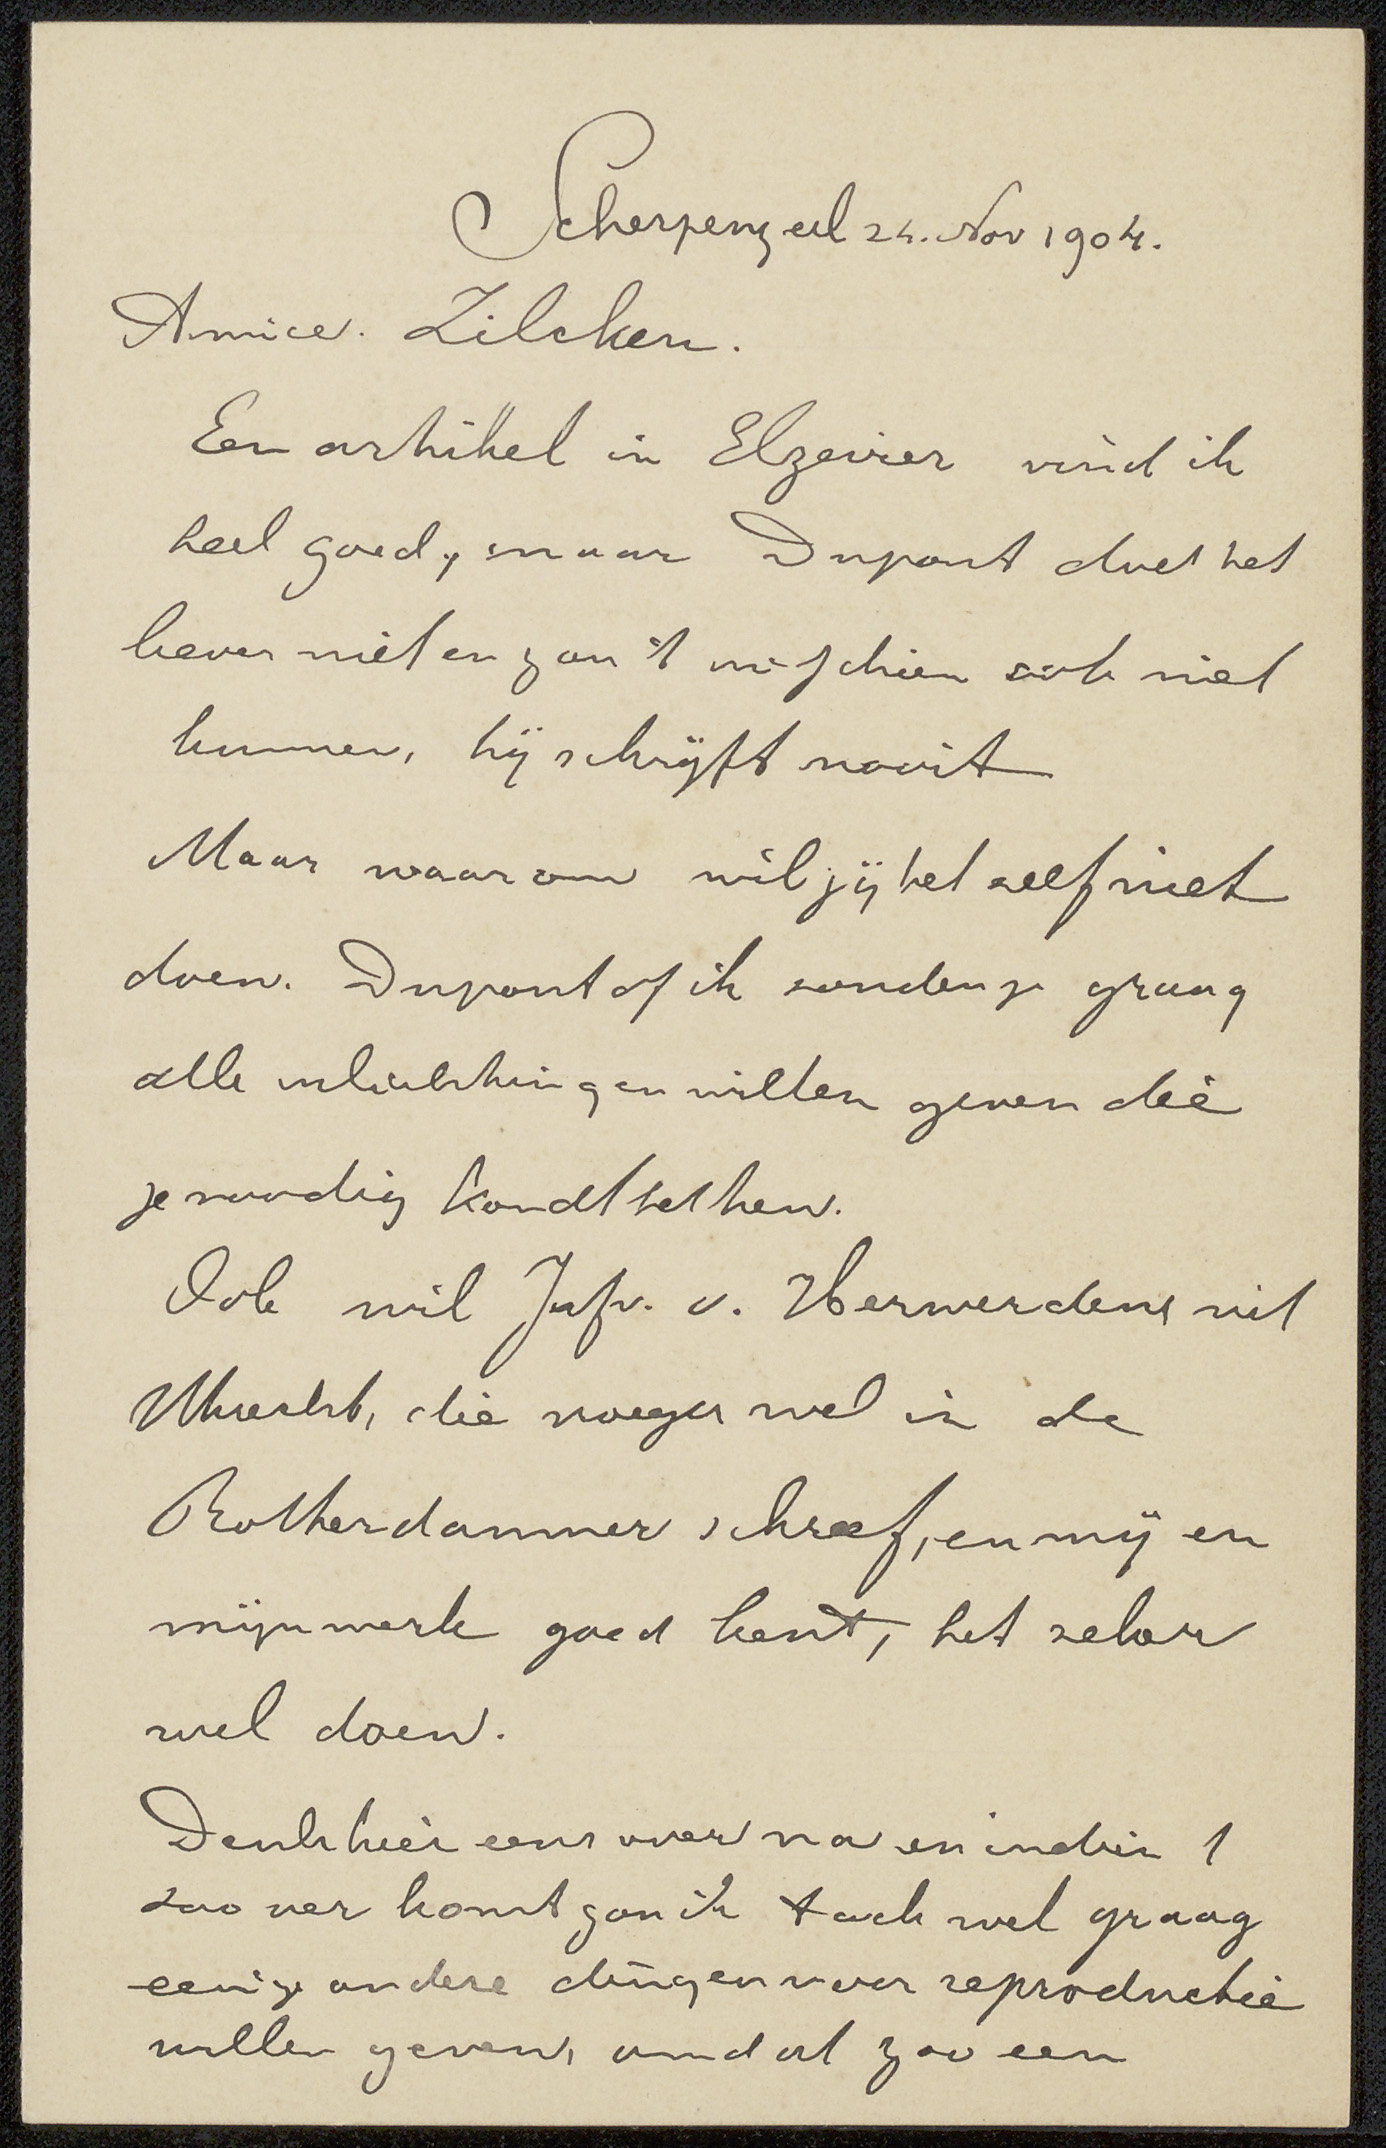 Scherpenzeel 24. Nov 1904.
Amice. Zilcken.
Een artikel in Elzevier vind ik
heel goed, maar Dupont doet het
liever niet en zou 't misschien ook niet
kunnen, hij schrijft nooit
Maar waarom wil jij het self niet
doen. Dupont of ik souden je graag
alle inlichtingen willen geven die
je noodig kondt hebben.
Ook wil Jufv. v. Herwerden uit
Utrecht, die vroeger wel in de
Rotterdammer schreef, en mij en
mijn werk goed kent, het seker
wel doen.
Denk hier eens over na en indien 't
soo ver komt zou ik toch wel graag
eenige andere dingen voor reproductie
willen geven, omdat zoo een